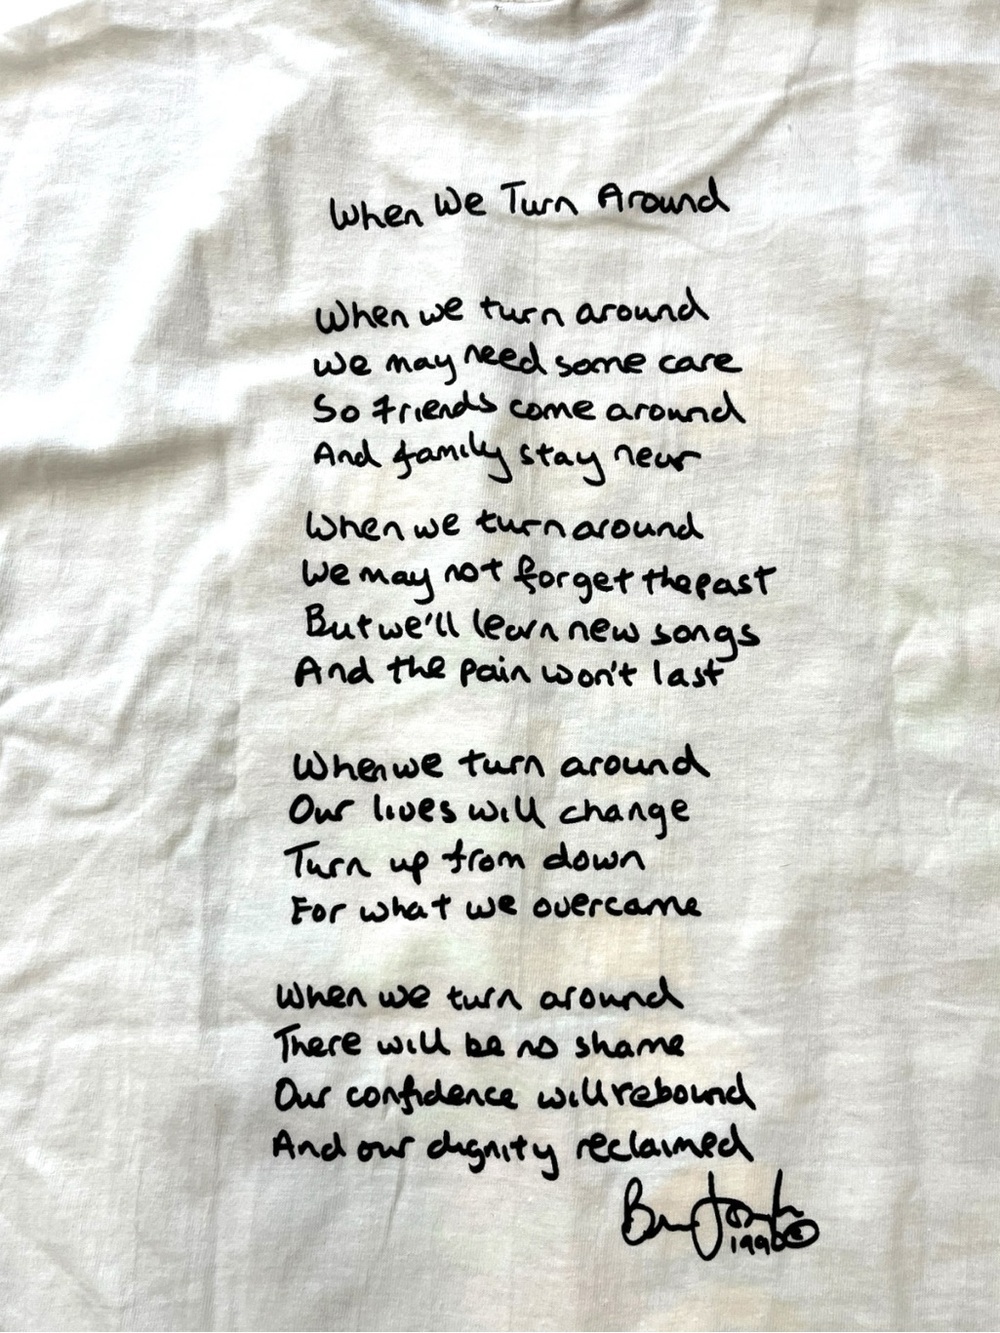 When We Turn Around
When we turn around
We may need some care
So friends come around
And family stay near
When we turn around
We may not forget the past
But we'll learn new songs
And the pain won't last
When we turn around
Our lives will change
Turn up from down
For what we overcame
When we turn around
There will be no shame
Our confidence will rebound
And our dignity reclaimed
1996 ©